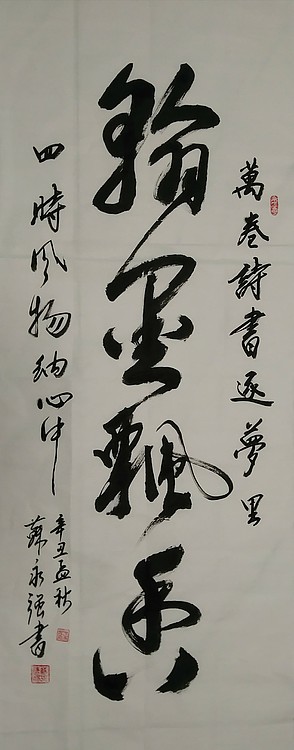 萬卷詩書逐夢里
翰墨飄香
四時風物納心中
辛丑孟秋
蘇永强書